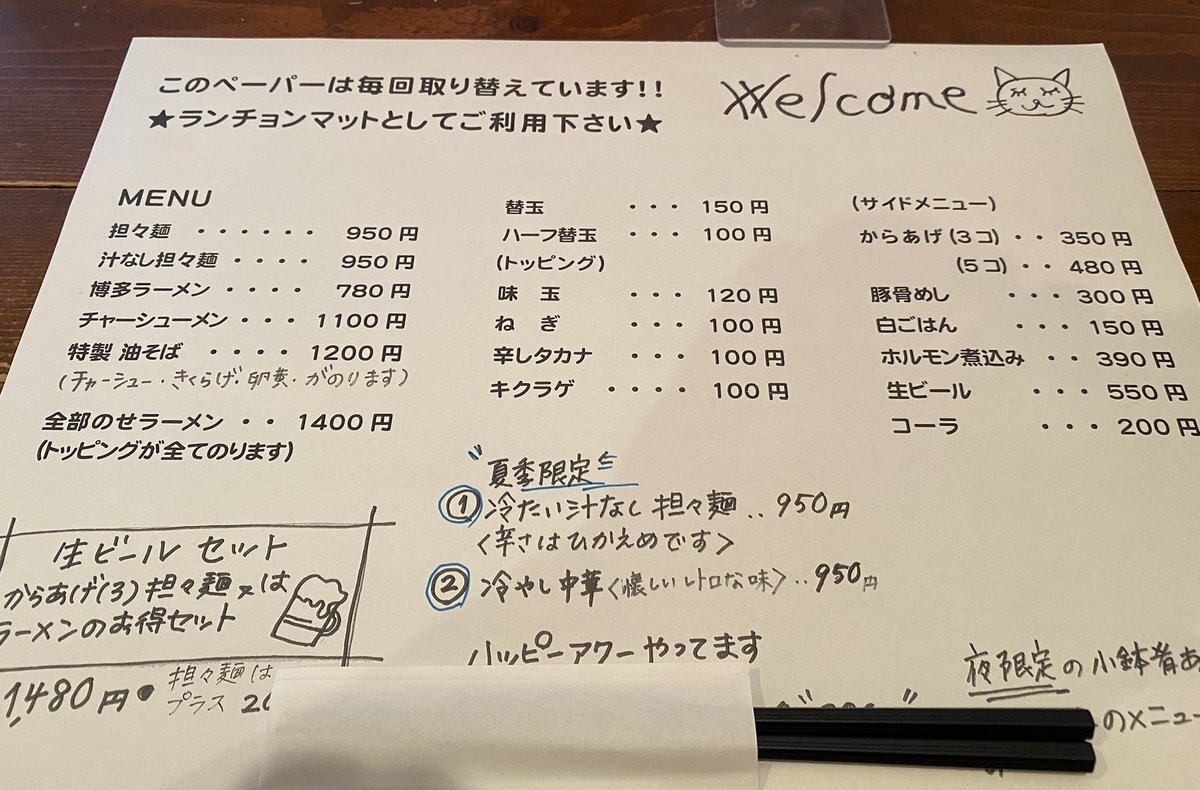 このペーパーは毎回取り替えています!!
★ランチョンマットとしてご利用下さい★
Welcome
MENU
担々麺 ・・・・・・ 950円
汁なし担々麺 ・・・・ 950円
博多ラーメン ・・・・ 780円
チャーシューメン ・・・ 1100円
特製 油そば ・・・・ 1200円
(チャーシュー・きくらげ・卵黄・がのります)
全部のせラーメン ・・ 1400円
(トッピングが全てのります)
替玉 ・・・ 150円
ハーフ替玉 ・・・ 100円
(トッピング)
味 玉 ・・・ 120円
ねぎ ・・・ 100円
辛しタカナ ・・・ 100円
キクラゲ ・・・・ 100円
(サイドメニュー)
からあげ(3コ)・・ 350円
(5コ)・・ 480円
豚骨めし ・・・ 300円
白ごはん ・・・ 150円
ホルモン煮込み ・・ 390円
生ビール ・・・ 550円
コーラ ・・・ 200円
"夏季限定"
① 冷たい汁なし担々麺‥950円
<辛さはひかえめです>
② 冷やし中華<懐しいレトロな味>‥950円
ハッピーアワーやってます
生ビールセット
からあげ(3)担々麺又は
ラーメンのお得セット
1,480円●
担々麺は
プラス
夜限定の小鉢肴あ
のメニュー